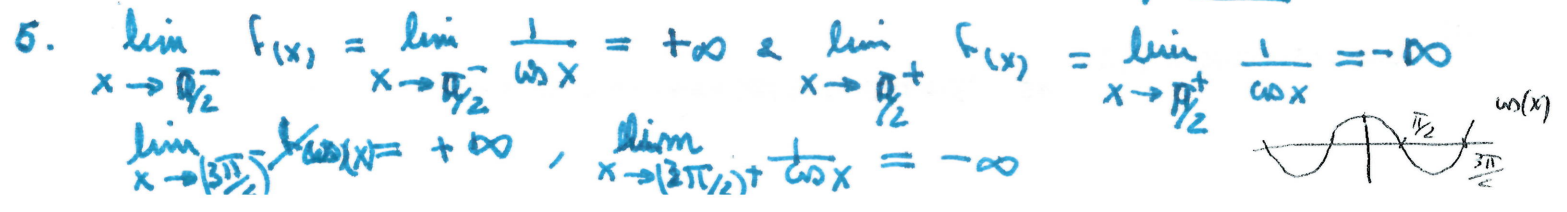 5. lim x→π/2⁻ f(x) = lim x→π/2⁻ 1/cos x = +∞ & lim x→π/2⁺ f(x) = lim x→π/2⁺ 1/cos x = -∞
lim x→(3π/2)⁻ 1/cos(x) = +∞ , lim x→(3π/2)+ 1/cos x = -∞
cos(x)
π/2
3π/2